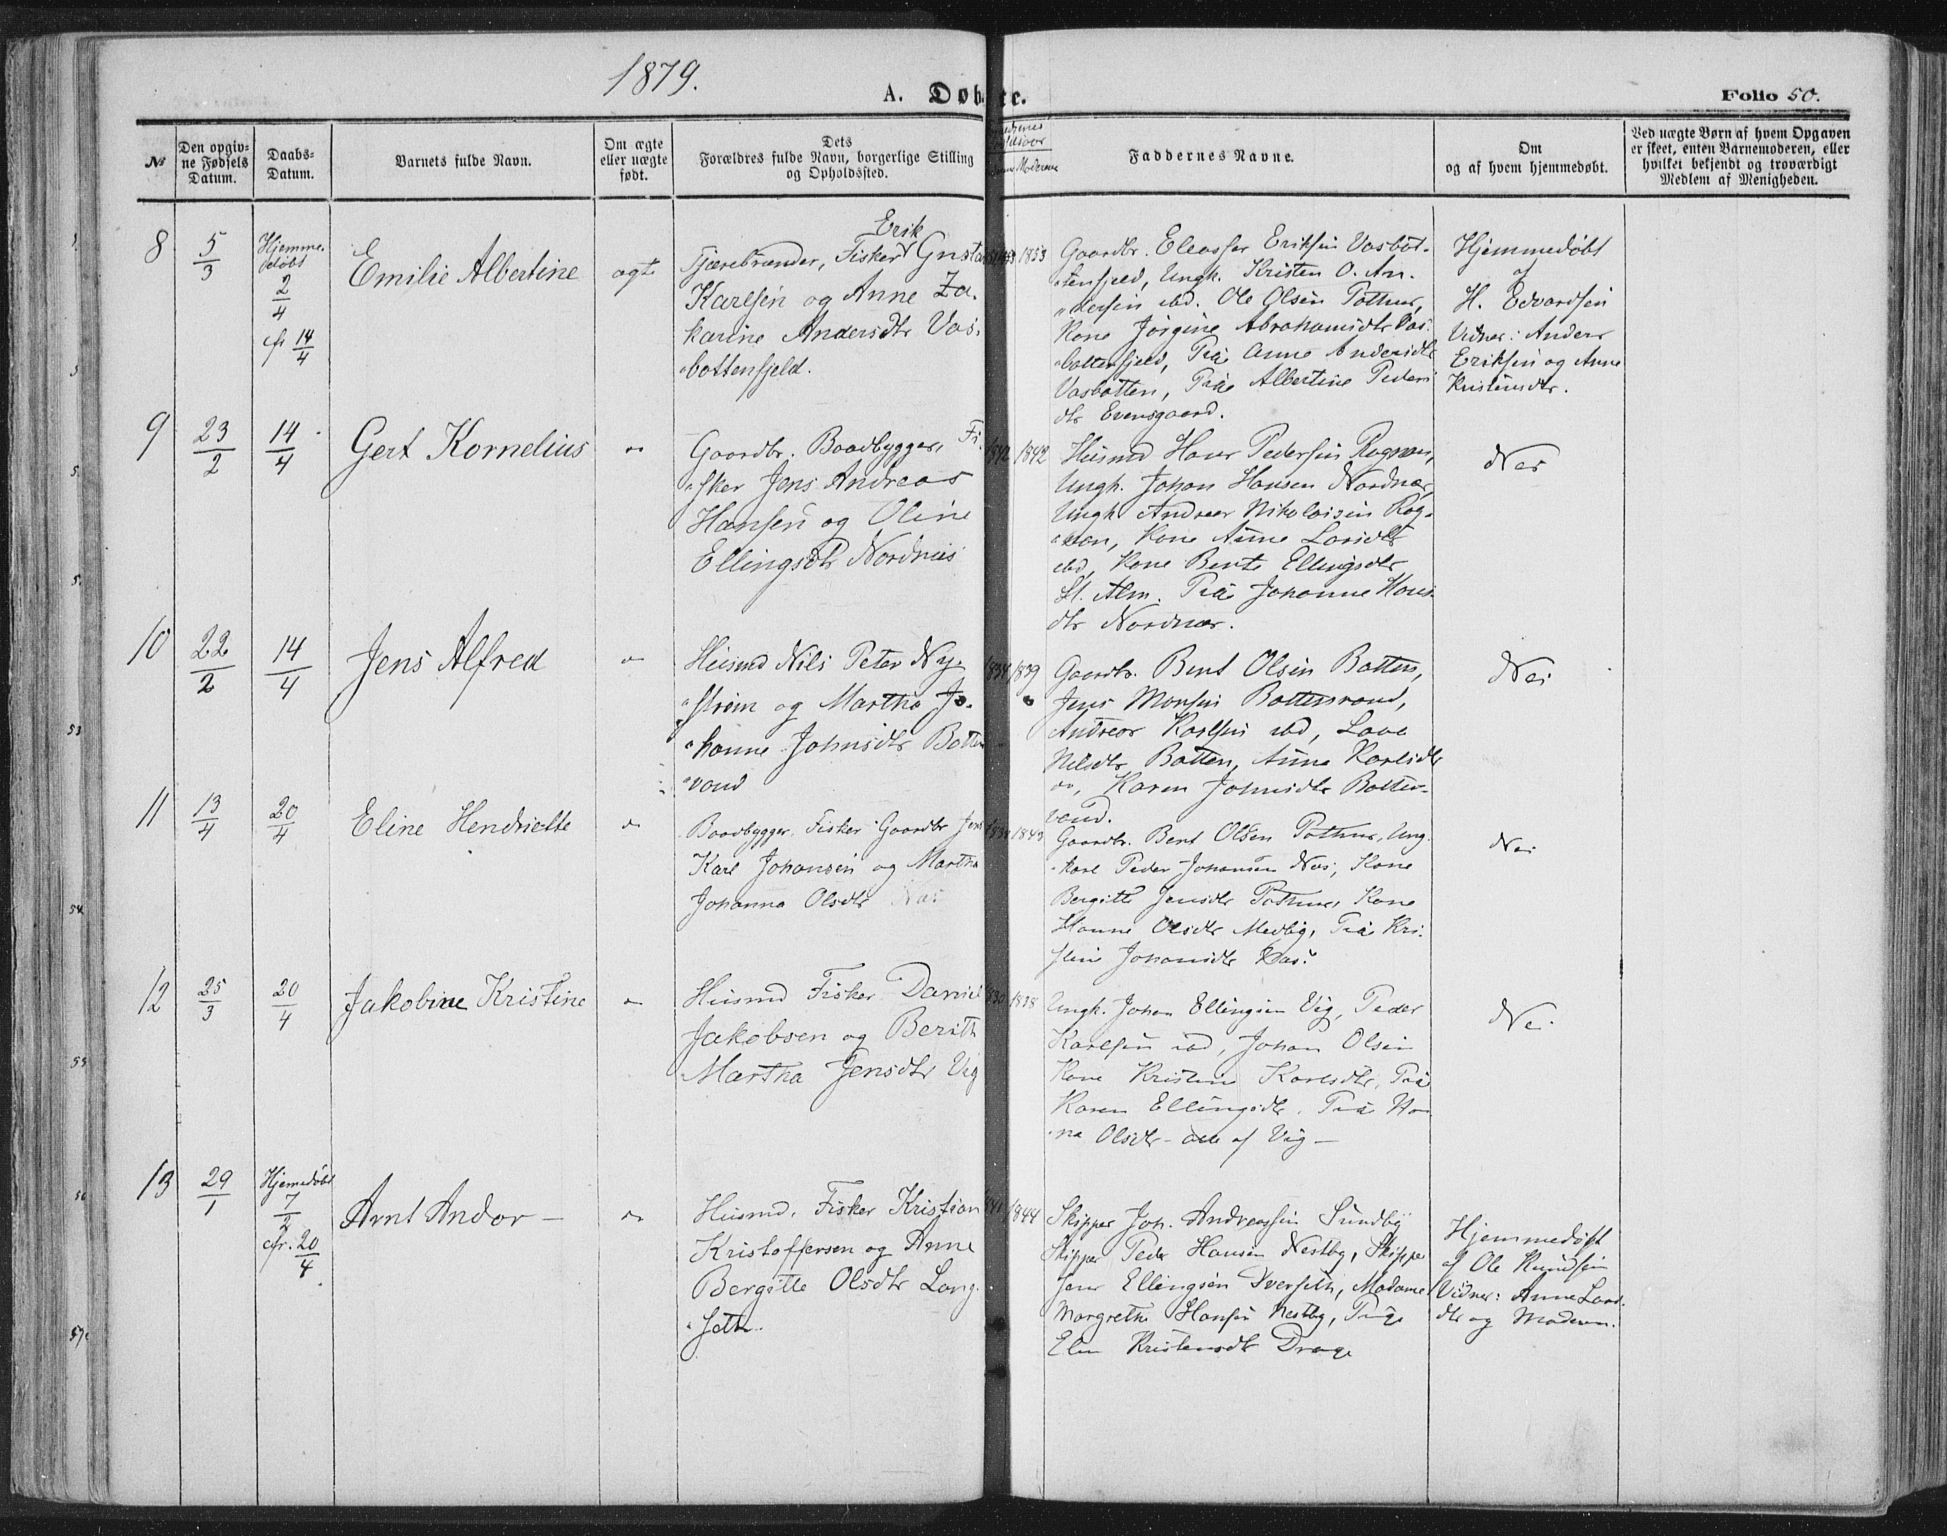 1879.
A. Døbte.
Folio 50.
No
Den opgiv-
ne Fødsels
Datum.
Daabs-
Datum.
Barnets fulde Navn.
Om ægte
eller uægte
født.
Dets
Forældres fulde Navn, borgerlige Stilling
og Opholdssted.
Faddernes Navne.
Om
og af hvem hjemmedøbt.
Ved uægte Børn af hvem Opgaven
er skeet, enten Barnemoderen, eller
hvilket bekjendt og troværdigt
Medlem af Menigheden.
8
5/3
Hjemme-
døbt
2/4
cfr 14/4
Emilie Albertine
ægte
Erik
Tjærebrænder, Fisker Gustav
Karlsen og Anne Za-
karine Andersdtr Vas-
bottenfjeld.
1853
Gaardbr. Eleasser Eriksen Vasbot-
tenfjeld, Ungk. Kristen O. An-
dersen ibd. Ole Olsen Pothus,
Kone Jørgine Abrahamsdtr Vas-
bottenfjeld, Pige Anne Andersdtr
Vasbotten, Pige Albertine Peders-
dtr Evensgaard.
Hjemmedøbt
af
H. Edvardsen
Vidner: Anders
Eriksen og Anne
Kristensdtr.
9
23/2
14/4
Gert Kornelius
"
Gaardbr. Baadbygger, Fi-
sker Jens Andreas
Hansen og Oline
Ellingsdtr Nordnæs
1842 1842
Husmd Hans Pedersen Rognan,
Ungk. Johan Hansen Nordnæs,
Ungk. Andreas Nikolaisen Rog-
nan, Kone Anne Larsdtr
ibd, Kone Berit Ellingsdtr
St. Alm. Pige Johanne Hans-
dtr Nordnæs.
Nei
10
22/2
14/4
Jens Alfred
"
Husmd Nils Peter Ny-
strøm og Martha Jo-
hanne Johnsdtr Botten-
vand
1834 1839
Gaardbr. Bent Olsen Botten,
Jens Monsen Bottenvand,
Andreas Karlsen ibd, Lava
Nilsdtr Botten, Anne Karlsdtr
", Karen Johnsdtr Botten-
vand.
Nei
11
13/4
20/4
Eline Hendriette
"
Baadbygger, Fisker Gaardbr Jens
Karl Johansen og Martha
Johanna Olsdtr Næs
1843
Gaardbr. Bent Olsen Pothus, Ung-
karl Peder Johansen Næs, Kone
Bergitte Jensdtr Pothus, Kone
Hanne Olsdtr Medby, Pige Kri-
stine Johansdtr Næs.
Nei
12
25/3
20/4
Jakobine Kristine
"
Husmd Fisker Daniel
Jakobsen og Berith
Martha Jensdtr Vig
1830 1838
Ungk. Johan Ellingsen Vig, Peder
Karlsen ibd, Johan Olsen
Kone Kristine Karlsdtr, Pige
Karen Ellingsdtr, Pige Han-
na Olsdtr – alle af Vig –
Nei.
13
29/1
Hjemmedøbt
7/2
cfr. 20/4
Arnt Andor –
"
Husmd. Fisker Kristian
Kristoffersen og Anne
Bergitte Olsdtr Lang-
seth.
1841 1844
Skipper Joh. Andreassen Sundby
Skipper Peder Hansen Nestby, Skipper
Jens Ellingsen Dverseth, Madame
Margrethe Hansen Nestby, Pige
Elen Kristensdtr Drage
Hjemmedøbt
af Ole Knudsen
Vidner: Anne Lars-
dtr og Moderen.